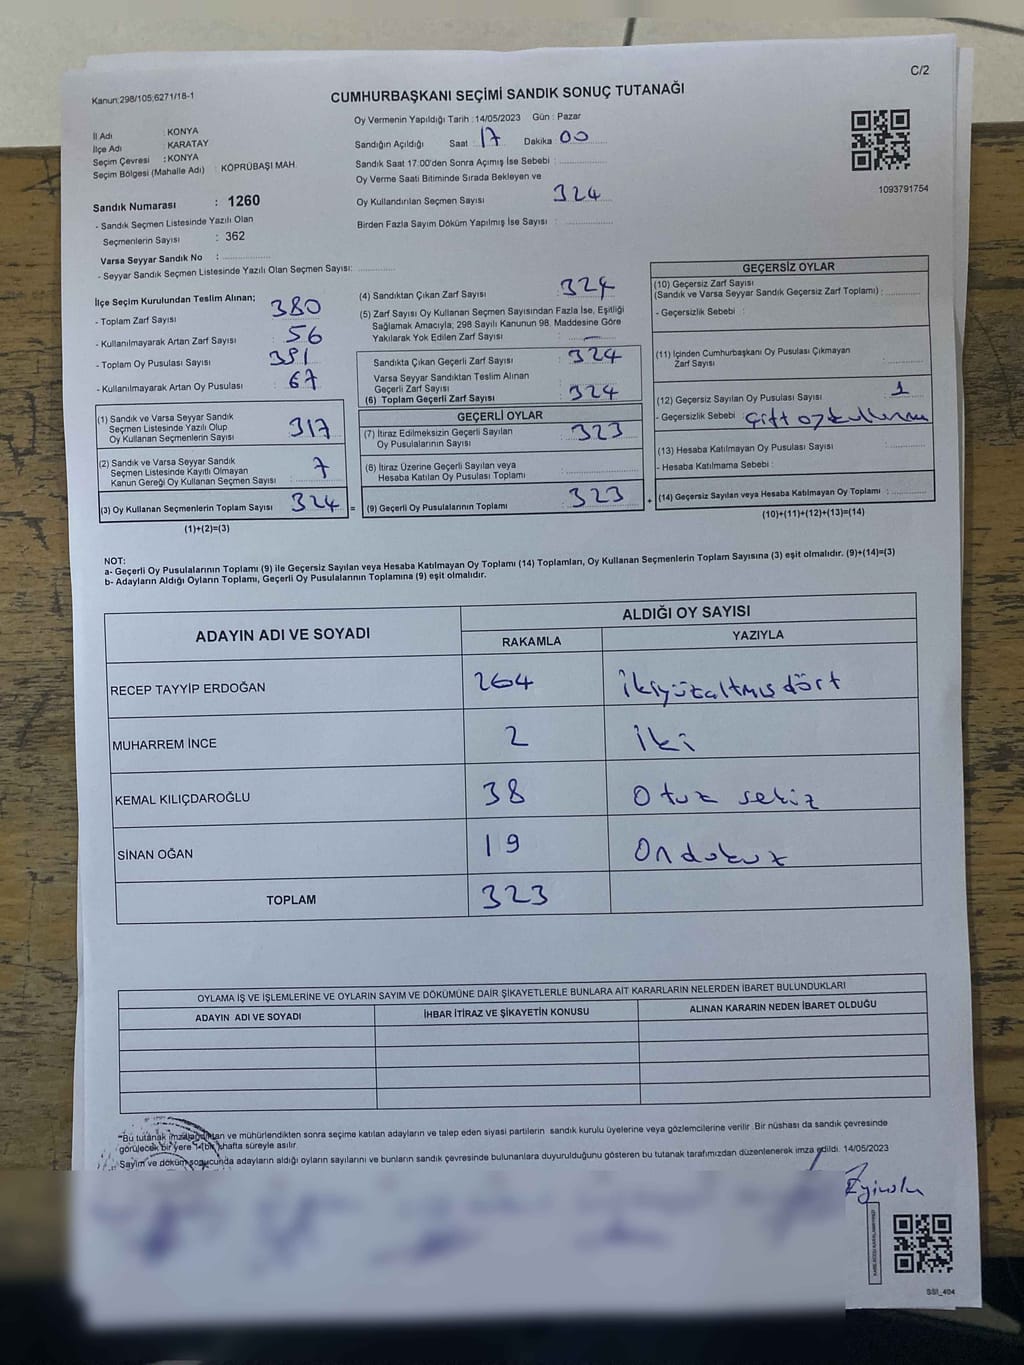 C/2
Kanun:298/105;6271/18-1
CUMHURBAŞKANI SEÇİMİ SANDIK SONUÇ TUTANAĞI
İl Adı : KONYA
İlçe Adı : KARATAY
Seçim Çevresi : KONYA
Seçim Bölgesi (Mahalle Adı) : KÖPRÜBAŞI MAH.
Sandık Numarası : 1260
- Sandık Seçmen Listesinde Yazılı Olan
Seçmenlerin Sayısı : 362
Varsa Seyyar Sandık No :
- Seyyar Sandık Seçmen Listesinde Yazılı Olan Seçmen Sayısı:
Oy Vermenin Yapıldığı Tarih : 14/05/2023 Gün : Pazar
Sandığın Açıldığı Saat 17 Dakika 00
Sandık Saat 17:00'den Sonra Açımış İse Sebebi :
Oy Verme Saati Bitiminde Sırada Bekleyen ve
Oy Kullandırılan Seçmen Sayısı 324
Birden Fazla Sayım Döküm Yapılmış İse Sayısı :
1093791754
İlçe Seçim Kurulundan Teslim Alınan;
- Toplam Zarf Sayısı 380
- Kullanılmayarak Artan Zarf Sayısı 56
- Toplam Oy Pusulası Sayısı 391
- Kullanılmayarak Artan Oy Pusulası 67
(1) Sandık ve Varsa Seyyar Sandık
Seçmen Listesinde Yazılı Olup
Oy Kullanan Seçmenlerin Sayısı 317
(2) Sandık ve Varsa Seyyar Sandık
Seçmen Listesinde Kayıtlı Olmayan
Kanun Gereği Oy Kullanan Seçmen Sayısı 7
(3) Oy Kullanan Seçmenlerin Toplam Sayısı 324 =
(1)+(2)=(3)
(4) Sandıktan Çıkan Zarf Sayısı : 324
(5) Zarf Sayısı Oy Kullanan Seçmen Sayısından Fazla İse, Eşitliği
Sağlamak Amacıyla; 298 Sayılı Kanunun 98. Maddesine Göre
Yakılarak Yok Edilen Zarf Sayısı : —
Sandıkta Çıkan Geçerli Zarf Sayısı : 324
Varsa Seyyar Sandıktan Teslim Alınan
Geçerli Zarf Sayısı
(6) Toplam Geçerli Zarf Sayısı : 324
GEÇERLİ OYLAR
(7) İtiraz Edilmeksizin Geçerli Sayılan
Oy Pusulalarının Sayısı : 323
(8) İtiraz Üzerine Geçerli Sayılan veya
Hesaba Katılan Oy Pusulası Toplamı
(9) Geçerli Oy Pusulalarının Toplamı : 323 +
GEÇERSİZ OYLAR
(10) Geçersiz Zarf Sayısı
(Sandık ve Varsa Seyyar Sandık Geçersiz Zarf Toplamı) :
- Geçersizlik Sebebi :
(11) İçinden Cumhurbaşkanı Oy Pusulası Çıkmayan
Zarf Sayısı
(12) Geçersiz Sayılan Oy Pusulası Sayısı 1
- Geçersizlik Sebebi : Çift oy kullanma
(13) Hesaba Katılmayan Oy Pusulası Sayısı
- Hesaba Katılmama Sebebi :
(14) Geçersiz Sayılan veya Hesaba Katılmayan Oy Toplamı :
(10)+(11)+(12)+(13)=(14)
NOT:
a- Geçerli Oy Pusulalarının Toplamı (9) ile Geçersiz Sayılan veya Hesaba Katılmayan Oy Toplamı (14) Toplamları, Oy Kullanan Seçmenlerin Toplam Sayısına (3) eşit olmalıdır. (9)+(14)=(3)
b- Adayların Aldığı Oyların Toplamı, Geçerli Oy Pusulalarının Toplamına (9) eşit olmalıdır.
ADAYIN ADI VE SOYADI ALDIĞI OY SAYISI
RAKAMLA YAZIYLA
RECEP TAYYİP ERDOĞAN 264 İkiyüzaltmışdört
MUHARREM İNCE 2 İki
KEMAL KILIÇDAROĞLU 38 Otuz sekiz
SİNAN OĞAN 19 Ondokuz
TOPLAM 323
OYLAMA İŞ VE İŞLEMLERİNE VE OYLARIN SAYIM VE DÖKÜMÜNE DAİR ŞİKAYETLERLE BUNLARA AİT KARARLARIN NELERDEN İBARET BULUNDUKLARI
ADAYIN ADI VE SOYADI İHBAR İTİRAZ VE ŞİKAYETİN KONUSU ALINAN KARARIN NEDEN İBARET OLDUĞU
"Bu tutanak imzalandıktan ve mühürlendikten sonra seçime katılan adayların ve talep eden siyasi partilerin sandık kurulu üyelerine veya gözlemcilerine verilir. Bir nüshası da sandık çevresinde
görülecek bir yere 1 (bir) hafta süreyle asılır.
Sayım ve döküm sonucunda adayların aldığı oyların sayılarını ve bunların sandık çevresinde bulunanlara duyurulduğunu gösteren bu tutanak tarafımızdan düzenlenerek imza edildi. 14/05/2023
SSI_404